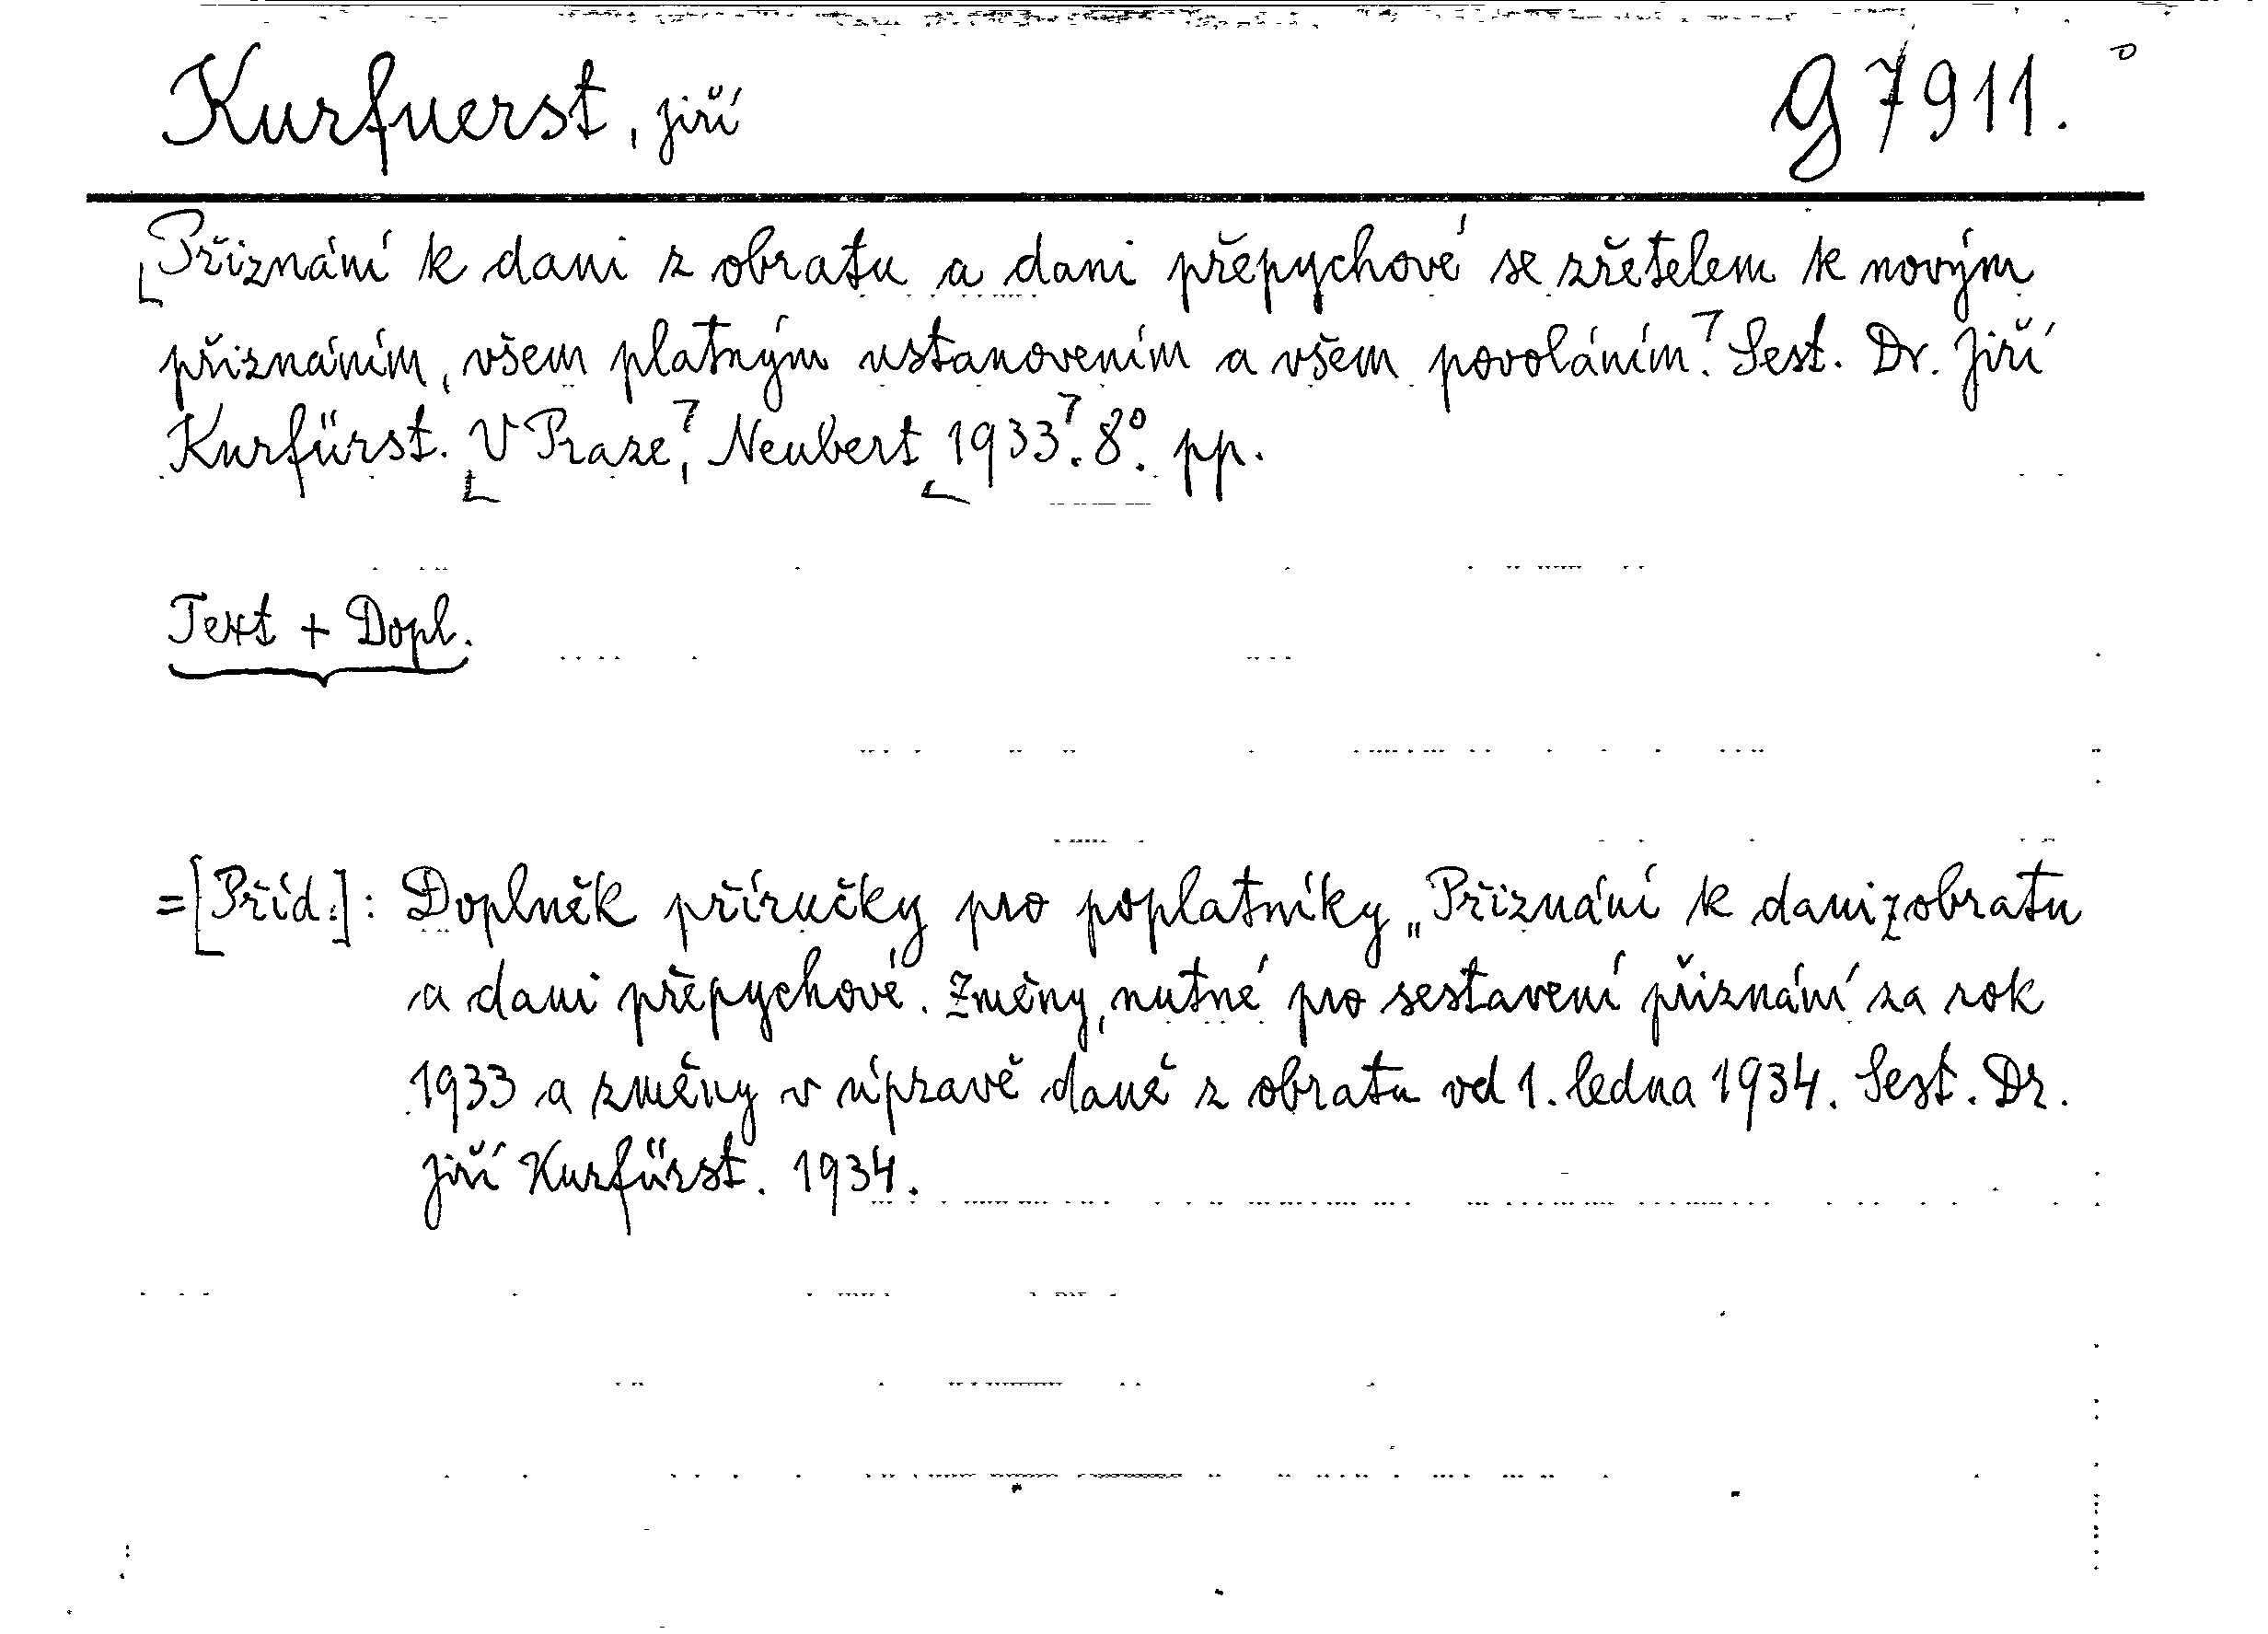 Kurfuerst, Jiří G 7911.
Přiznání k dani z obratu a dani přepychové se zřetelem k novým
přiznáním, všem platným ustanovením a všem povoláním. Sest. Dr. Jiří
Kurfürst. V Praze, Neubert 1933. 8°. pp.
Text + Dopl.
=[Příd.]: Doplněk příručky pro poplatníky „Přiznání k dani z obratu
a dani přepychové. Změny, nutné pro sestavení přiznání za rok
1933 a změny v úpravě daně z obratu od 1. ledna 1934. Sest. Dr.
Jiří Kurfürst. 1934.